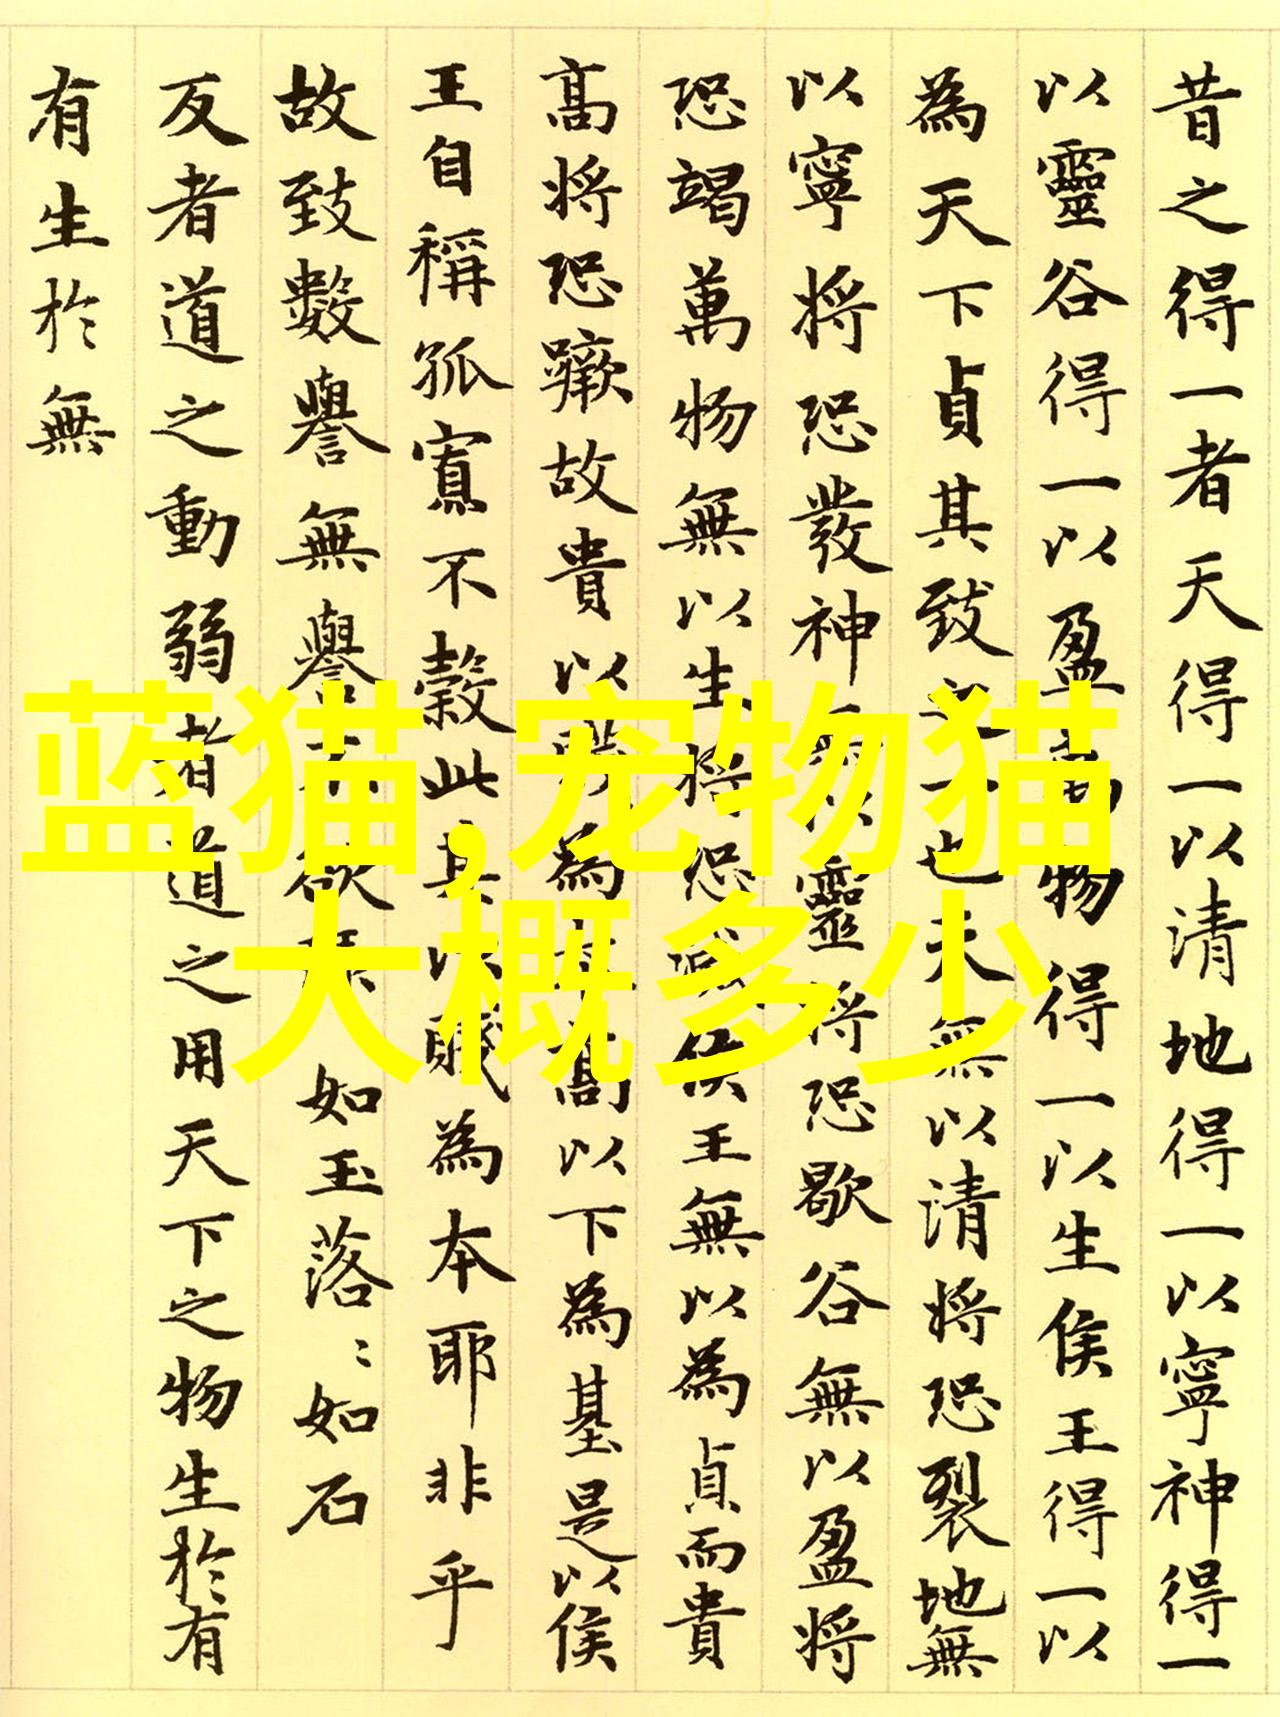 昔之得一者天得一以清地得一以寧神得一
以靈谷得一以盈萬物得一以生侯王得一以
為天下貞其致之一也天無以清將恐裂地無
以寧將恐發神無以靈將恐歇谷無以盈將
恐竭萬物無以生將恐滅侯王無以為貞而貴
高將恐蹶故貴以賤為本高以下為基是以侯
王自稱孤寡不穀此其以賤為本耶非乎
故致數譽無譽不欲琭如玉落〻如石
反者道之動弱者道之用天下之物生於有
有生於無
蓝猫,宠物猫
大概多少